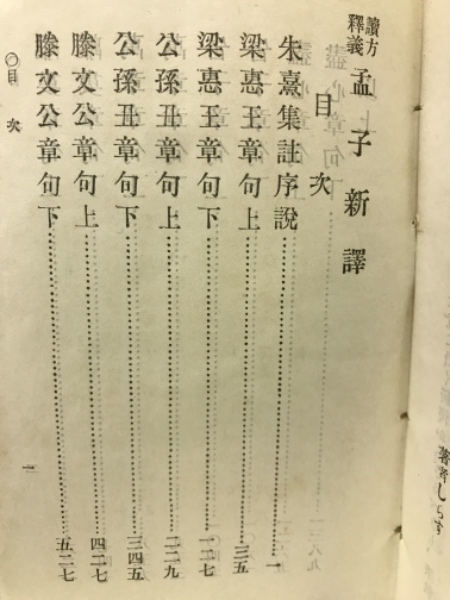 讀方
釋義
孟子新譯
目次
朱熹集註序說……一
梁惠王章句上……三五
梁惠王章句下……一二七
公孫丑章句上……二二九
公孫丑章句下……三四五
滕文公章句上……四二七
滕文公章句下……五二七
○目次
一